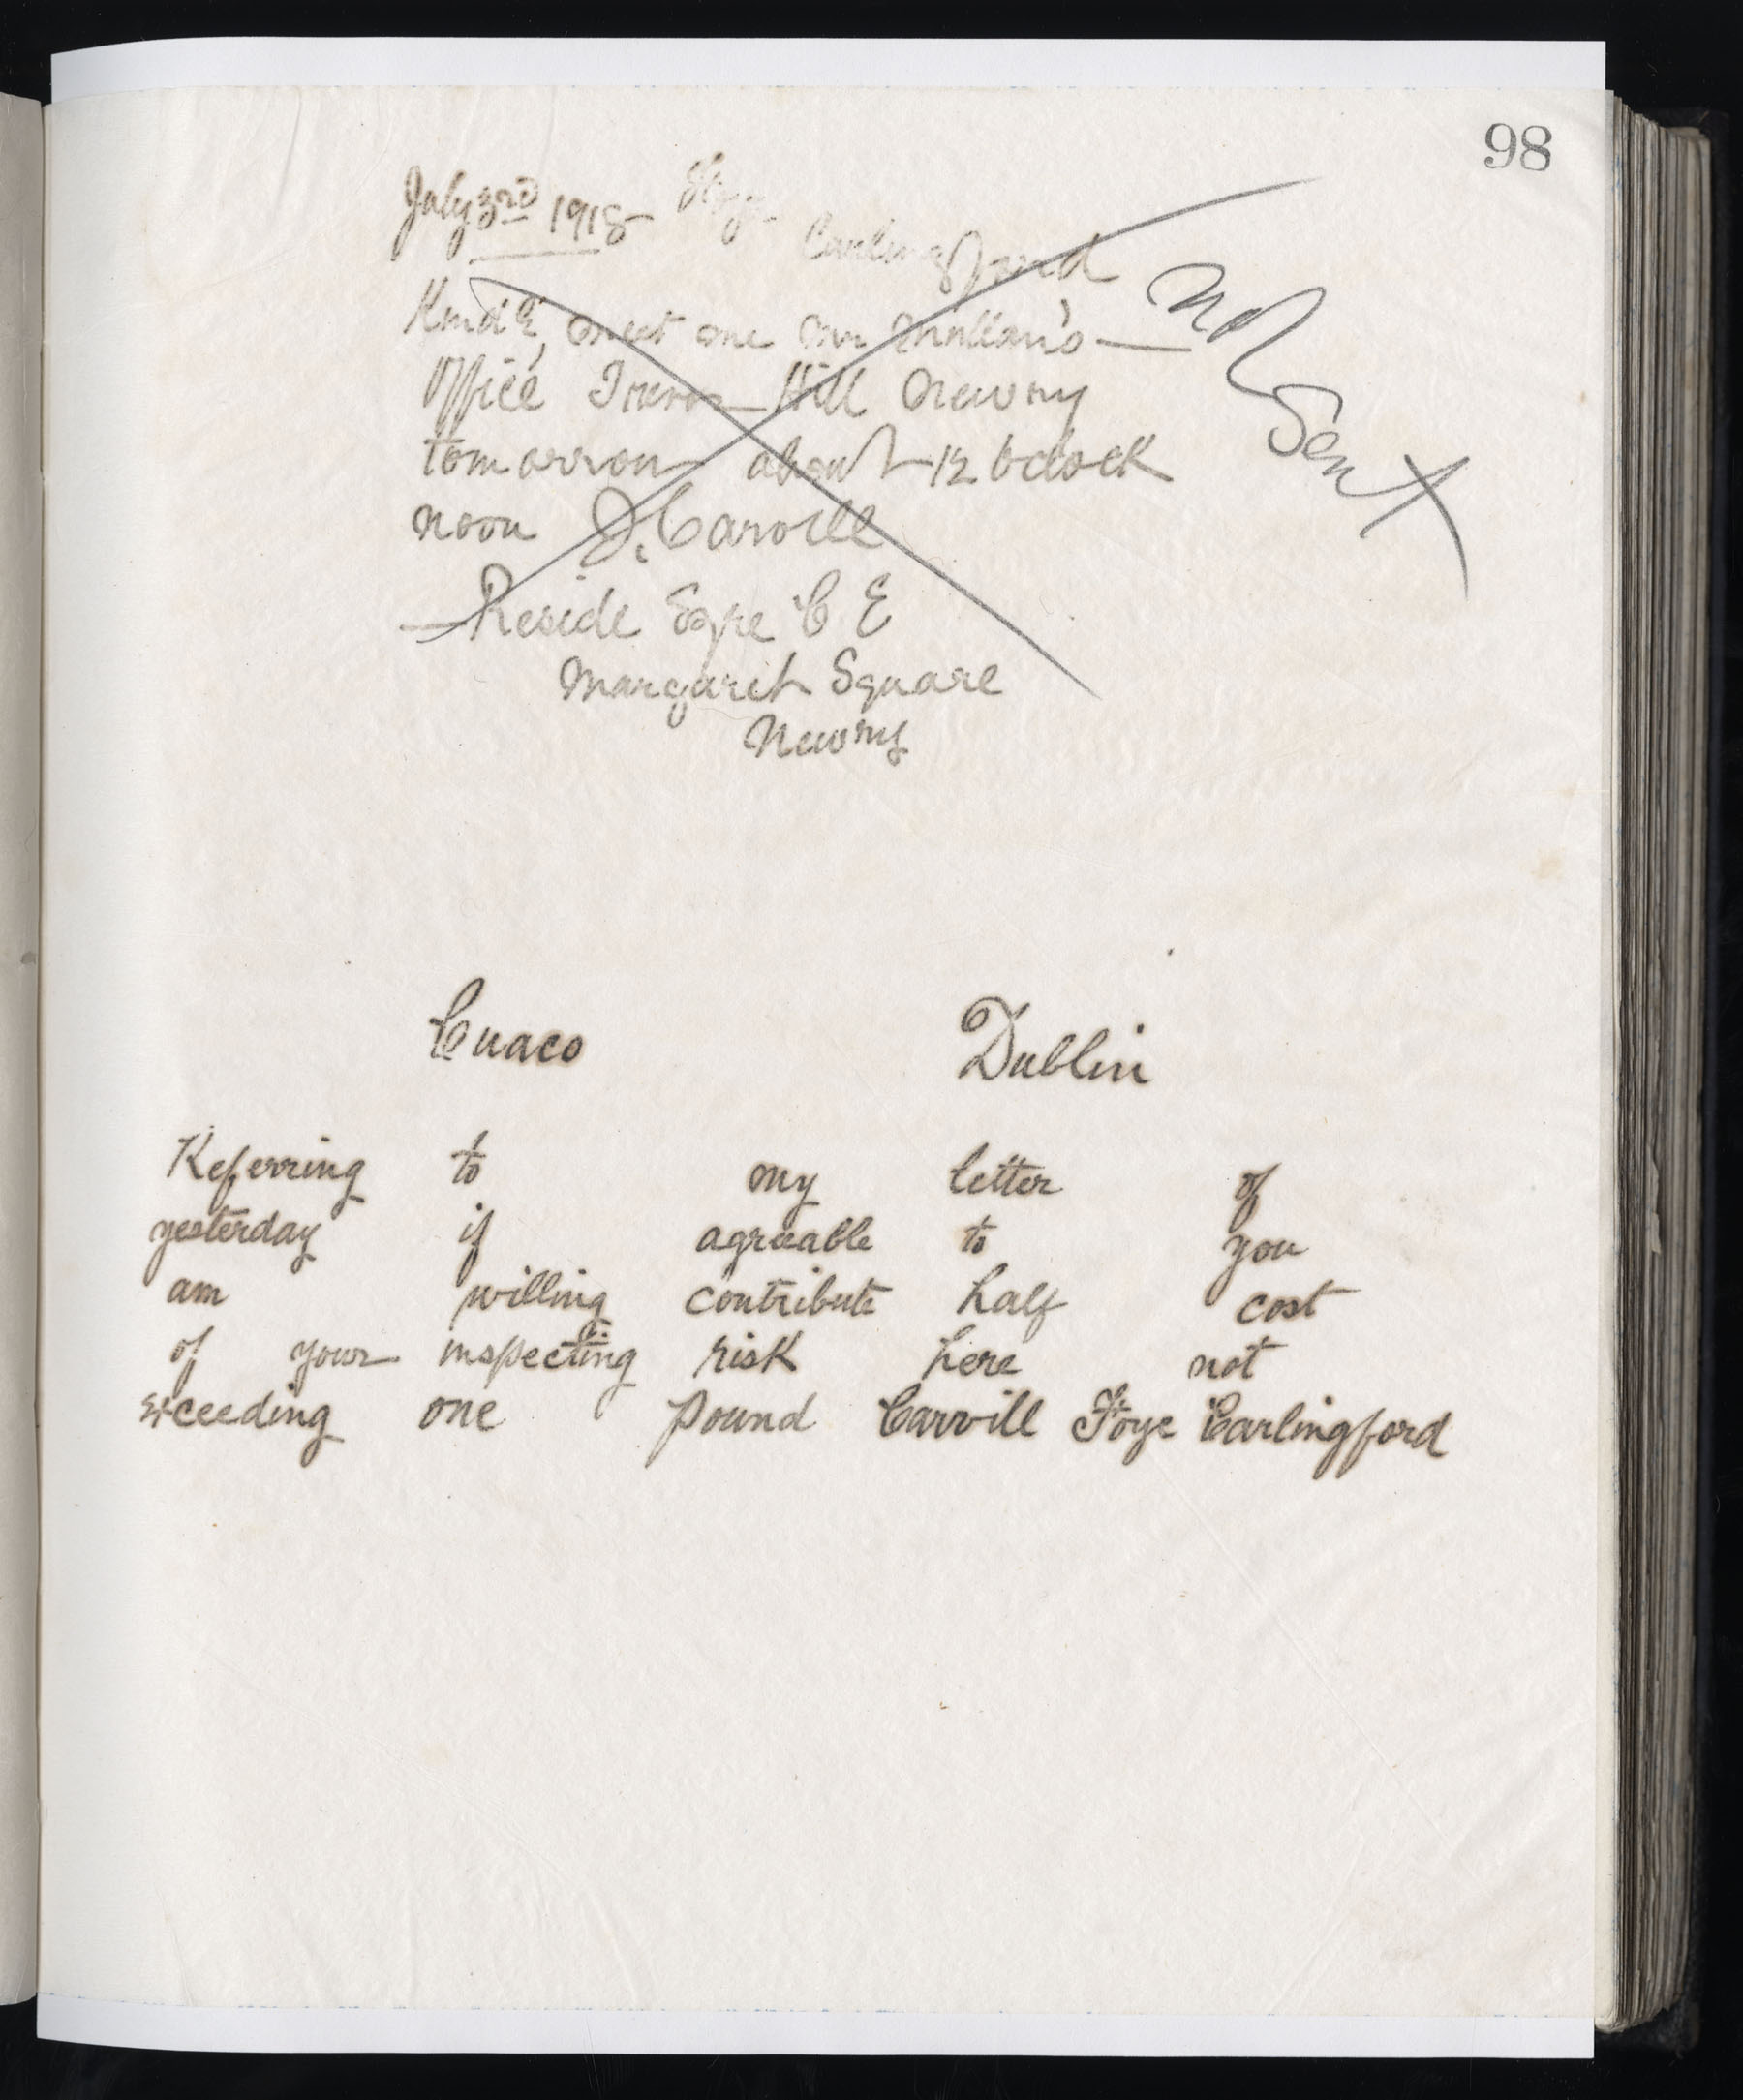 98
July 3rd 1918 Foye
Carlingford
Kindly meet me Mr Mollan's
Office Trevor Hill Newry
tomorrow about 12 oclock
noon J. Carvill
Reside Esqre C E
Margaret Square
Newry
Not Sent
Cuaco Dublin
Referring to my letter of
yesterday if agreeable to you
am willing contribute half cost
of your inspecting risk here not
exceeding one pound Carvill Foye Carlingford